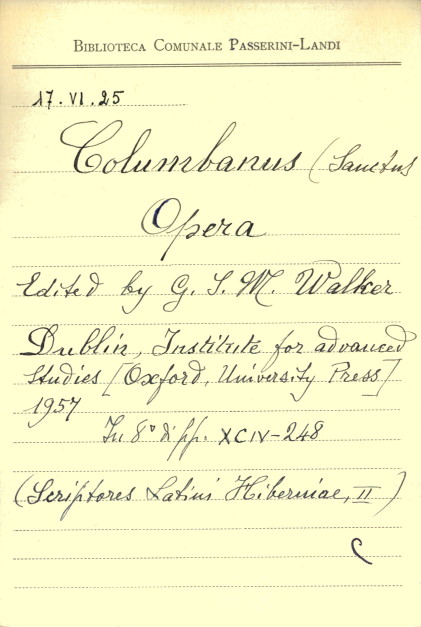 BIBLIOTECA COMUNALE PASSERINI-LANDI
17.VI.25
Columbanus (Sanctus
Opera
Edited by G. S. M. Walker
Dublin, Institute for advanced
Studies [Oxford, University Press]
1957
In 8° di pp. XCIV-248
(Scriptores Latini Hiberniae, II)
C